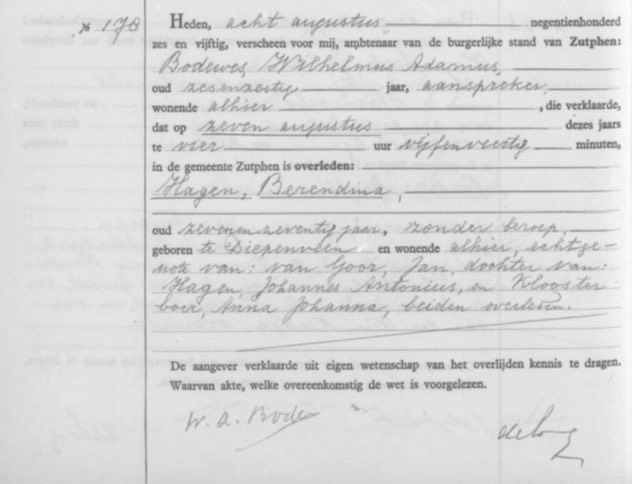 № 178
Heden, acht augustus negentienhonderd
zes en vijftig, verscheen voor mij, ambtenaar van de burgerlijke stand van Zutphen:
Bodewes, Wilhelmus Adamus,
oud zesenzestig jaar, aanspreker
wonende alhier, die verklaarde,
dat op zeven augustus dezes jaars
te vier uur vijfenveertig minuten,
in de gemeente Zutphen is overleden:
Hagen, Berendina,
oud zevenenzeventig jaar, zonder beroep,
geboren te Diepenveen en wonende alhier, echtge-
note van: van Goor, Jan, dochter van:
Hagen, Johannes Antonius, en Klooster-
boer, Anna Johanna, beiden overleden.
De aangever verklaarde uit eigen wetenschap van het overlijden kennis te dragen.
Waarvan akte, welke overeenkomstig de wet is voorgelezen.
W. A. Bode